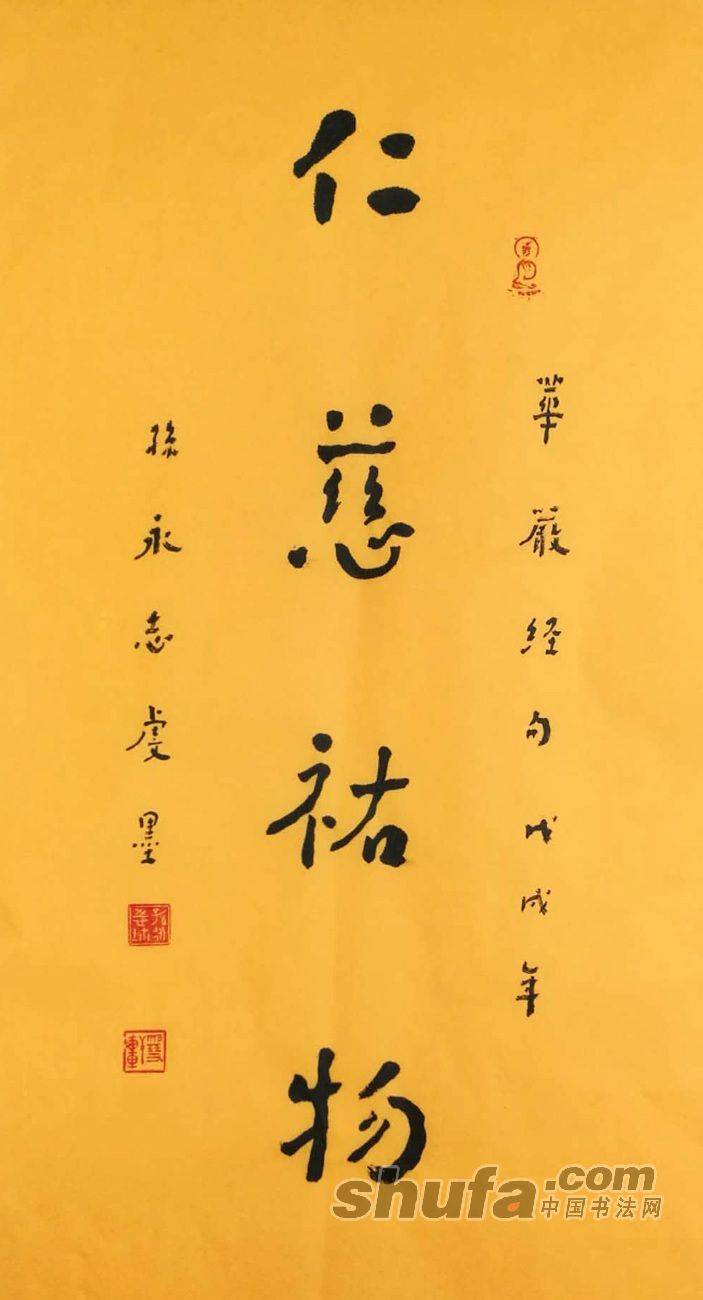 華嚴經句戊戌年
仁慈祐物
孫永志虔墨
shufa.com
中国书法网